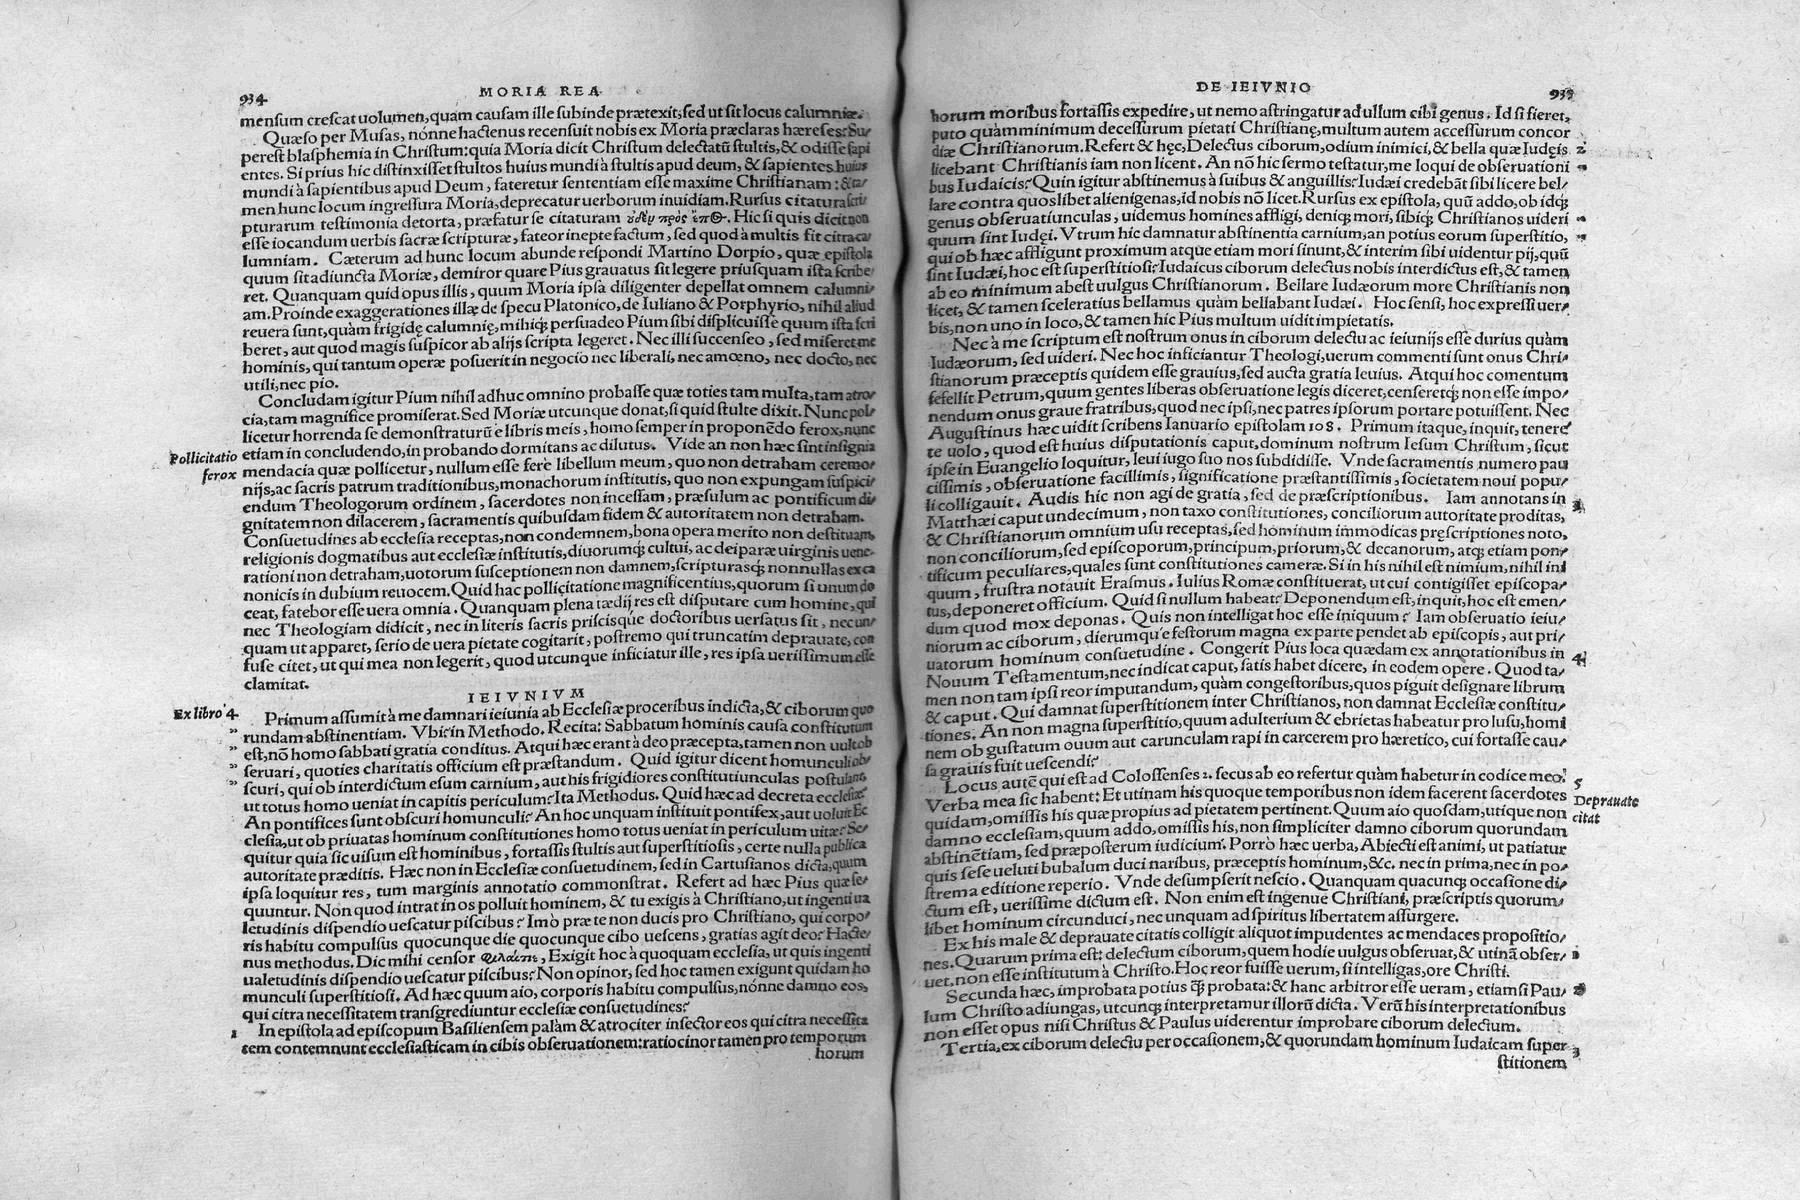 934 MORIA REA
mensum crescat uolumen, quam causam ille subinde prætexit, sed ut sit locus calumniæ.
Quæso per Musas, nónne hactenus recensuit nobis ex Moria præclaras hæreses? Su-
perest blasphemia in Christum: quia Moria dicit Christum delectatũ stultis, & odisse sapi
entes. Si prius hic distinxisset stultos huius mundi à stultis apud deum, & sapientes huius
mundi à sapientibus apud Deum, fateretur sententiam esse maxime Christianam: & ta-
men hunc locum ingressura Moria, deprecatur uerborum inuidiam. Rursus citatura scri-
pturarum testimonia detorta, præfatur se citaturam οὐδὲν πρὸς ἔπος. Hic si quis dicit non
esse iocandum uerbis sacræ scripturæ, fateor inepte factum, sed quod à multis fit citra ca-
lumniam. Cæterum ad hunc locum abunde respondi Martino Dorpio, quæ epistola
quum sit adiuncta Moriæ, demiror quare Pius grauatus sit legere priusquam ista scribe-
ret. Quanquam quid opus illis, quum Moria ipsa diligenter depellat omnem calumni-
am. Proinde exaggerationes illæ de specu Platonico, de Iuliano & Porphyrio, nihil aliud
reuera sunt, quàm frigidę calumnię, mihiq́; persuadeo Pium sibi displicuisse quum ista scri
beret, aut quod magis suspicor ab alijs scripta legeret. Nec illi succenseo, sed miseret me
hominis, qui tantum operæ posuerit in negocio nec liberali, nec amœno, nec docto, nec
utili, nec pio.
Concludam igitur Pium nihil adhuc omnino probasse quæ toties tam multa, tam atro-
cia, tam magnifice promiserat. Sed Moriæ utcunque donat, si quid stulte dixit. Nunc pol-
licetur horrenda se demonstraturũ e libris meis, homo semper in proponẽdo ferox, nunc
Pollicitatio etiam in concludendo, in probando dormitans ac dilutus. Vide an non hæc sint insignia
ferox mendacia quæ pollicetur, nullum esse fere libellum meum, quo non detraham ceremo-
nijs, ac sacris patrum traditionibus, monachorum institutis, quo non expungam suspici-
endum Theologorum ordinem, sacerdotes non incessam, præsulum ac pontificum di-
gnitatem non dilacerem, sacramentis quibusdam fidem & autoritatem non detraham.
Consuetudines ab ecclesia receptas, non condemnem, bona opera merito non destituam,
religionis dogmatibus aut ecclesiæ institutis, diuorumq́; cultui, ac deiparæ uirginis uene-
rationi non detraham, uotorum susceptionem non damnem, scripturasq́; nonnullas exca
nonicis in dubium reuocem. Quid hac pollicitatione magnificentius, quorum si unum do
ceat, fatebor esse uera omnia. Quanquam plena tædij res est disputare cum homine, qui
nec Theologiam didicit, nec in literis sacris priscisque doctoribus uersatus sit, nec un-
quam ut apparet, serio de uera pietate cogitarit, postremo qui truncatim deprauate, con
fuse citet, ut qui mea non legerit, quod utcunque inficiatur ille, res ipsa uerissimum esse
clamitat.
IEIVNIVM
Ex libro 4. Primum assumit à me damnari ieiunia ab Ecclesiæ proceribus indicta, & ciborum quo
” rundam abstinentiam. Vbi? in Methodo. Recita: Sabbatum hominis causa constitutum
” est, nõ homo sabbati gratia conditus. Atqui hæc erant à deo præcepta, tamen non uult ob
” seruari, quoties charitatis officium est præstandum. Quid igitur dicent homunculi ob-
” scuri, qui ob interdictum esum carnium, aut his frigidiores constitutiunculas postulant
ut totus homo ueniat in capitis periculum? Ita Methodus. Quid hæc ad decreta ecclesiæ?
An pontifices sunt obscuri homunculi? An hoc unquam instituit pontifex, aut uoluit Ec
clesia, ut ob priuatas hominum constitutiones homo totus ueniat in periculum uitæ? Se-
quitur quia sic uisum est hominibus, fortassis stultis aut superstitiosis, certe nulla publica
autoritate præditis. Hæc non in Ecclesiæ consuetudinem, sed in Cartusianos dicta, quum
ipsa loquitur res, tum marginis annotatio commonstrat. Refert ad hæc Pius quæ se-
quuntur. Non quod intrat in os polluit hominem, & tu exigis à Christiano, ut ingenti ua
letudinis dispendio uescatur piscibus? Imò præ te non ducis pro Christiano, qui corpo-
ris habitu compulsus quocunque die quocunque cibo uescens, gratias agit deo? Hacte-
nus methodus. Dic mihi censor, Exigit hoc à quoquam ecclesia, ut quis ingenti
ualetudinis dispendio uescatur piscibus? Non opinor, sed hoc tamen exigunt quidam ho
munculi superstitiosi. Ad hæc quum aio, corporis habitu compulsus, nónne damno eos,
qui citra necessitatem transgrediuntur ecclesiæ consuetudines?
1 In epistola ad episcopum Basiliensem palàm & atrociter insector eos qui citra necessita
tem contemnunt ecclesiasticam in cibis obseruationem: ratiocinor tamen pro temporum
horum
DE IEIVNIO 935
horum moribus fortassis expedire, ut nemo astringatur ad ullum cibi genus. Id si fieret,
puto quàm minimum decessurum pietati Christianę, multum autem accessurum concor
diæ Christianorum. Refert & hęc, Delectus ciborum, odium inimici, & bella quæ Iudęis 2
licebant Christianis iam non licent. An nõ hic sermo testatur, me loqui de obseruationi ”
bus Iudaicis? Quin igitur abstinemus à suibus & anguillis? Iudæi credebãt sibi licere bel-
lare contra quoslibet alienigenas, id nobis nõ licet. Rursus ex epistola, quũ addo, ob idq́;
genus obseruatiunculas, uidemus homines affligi, deniq́; mori, sibiq́; Christianos uideri ”
quum sint Iudęi. Vtrum hic damnatur abstinentia carnium, an potius eorum superstitio, ”
qui ob hæc affligunt proximum atque etiam mori sinunt, & interim sibi uidentur pij, quũ
sint Iudæi, hoc est superstitiosi? Iudaicus ciborum delectus nobis interdictus est, & tamen
ab eo minimum abest uulgus Christianorum. Bellare Iudæorum more Christianis non
licet, & tamen sceleratius bellamus quàm bellabant Iudæi. Hoc sensi, hoc expressi uer-
bis, non uno in loco, & tamen hic Pius multum uidit impietatis.
Nec à me scriptum est nostrum onus in ciborum delectu ac ieiunijs esse durius quàm
Iudæorum, sed uideri. Nec hoc inficiantur Theologi, uerum commenti sunt onus Chri-
stianorum præceptis quidem esse grauius, sed aucta gratia leuius. Atqui hoc comentum
fefellit Petrum, quum gentes liberas obseruatione legis diceret, censeretq́; non esse impo-
nendum onus graue fratribus, quod nec ipsi, nec patres ipsorum portare potuissent. Nec
Augustinus hæc uidit scribens Ianuario epistolam 108. Primum itaque, inquit, tenere
te uolo, quod est huius disputationis caput, dominum nostrum Iesum Christum, sicut
ipse in Euangelio loquitur, leui iugo suo nos subdidisse. Vnde sacramentis numero pau
cissimis, obseruatione facillimis, significatione præstantissimis, societatem noui popu-
li colligauit. Audis hic non agi de gratia, sed de præscriptionibus. Iam annotans in 3
Matthæi caput undecimum, non taxo constitutiones, conciliorum autoritate proditas,
& Christianorum omnium usu receptas, sed hominum immodicas pręscriptiones noto,
non conciliorum, sed episcoporum, principum, priorum, & decanorum, atq; etiam pon-
tificum peculiares, quales sunt constitutiones cameræ. Si in his nihil est nimium, nihil ini
quum, frustra notauit Erasmus. Iulius Romæ constituerat, ut cui contigisset episcopa-
tus, deponeret officium. Quid si nullum habeat? Deponendum est, inquit, hoc est emen-
dum quod mox deponas. Quis non intelligat hoc esse iniquum? Iam obseruatio ieiu-
niorum ac ciborum, dierumq́ue festorum magna ex parte pendet ab episcopis, aut pri-
uatorum hominum consuetudine. Congerit Pius loca quædam ex annotationibus in 4
Nouum Testamentum, nec indicat caput, satis habet dicere, in eodem opere. Quod ta-
men non tam ipsi reor imputandum, quàm congestoribus, quos piguit designare librum
& caput. Qui damnat superstitionem inter Christianos, non damnat Ecclesiæ constitu-
tiones. An non magna superstitio, quum adulterium & ebrietas habeatur pro lusu, homi
nem ob gustatum ouum aut carunculam rapi in carcerem pro hæretico, cui fortasse cau-
sa grauis fuit uescendi?
Locus autẽ qui est ad Colossenses 2. secus ab eo refertur quàm habetur in codice meo. 5
Verba mea sic habent: Et utinam his quoque temporibus non idem facerent sacerdotes Deprauate
quidam, omissis his quæ propius ad pietatem pertinent. Quum aio quosdam, utique non citat
damno ecclesiam, quum addo, omissis his, non simpliciter damno ciborum quorundam
abstinẽtiam, sed præposterum iudicium. Porrò hæc uerba, Abiecti est animi, ut patiatur
quis sese ueluti bubalum duci naribus, præceptis hominum, &c. nec in prima, nec in po-
strema editione reperio. Vnde desumpserit nescio. Quanquam quacunq; occasione di-
ctum est, uerissime dictum est. Non enim est ingenue Christiani, præscriptis quorum-
libet hominum circunduci, nec unquam ad spiritus libertatem assurgere.
Ex his male & deprauate citatis colligit aliquot impudentes ac mendaces propositio-
nes. Quarum prima est: delectum ciborum, quem hodie uulgus obseruat, & utinã obser- 1
uet, non esse institutum à Christo. Hoc reor fuisse uerum, si intelligas, ore Christi.
Secunda hæc, improbata potius q̃ probata: & hanc arbitror esse ueram, etiam si Pau- 2
lum Christo adiungas, utcunq; interpretamur illorũ dicta. Verũ his interpretationibus
non esset opus nisi Christus & Paulus uiderentur improbare ciborum delectum.
Tertia, ex ciborum delectu per occasionem, & quorundam hominum Iudaicam super- 3
stitionem